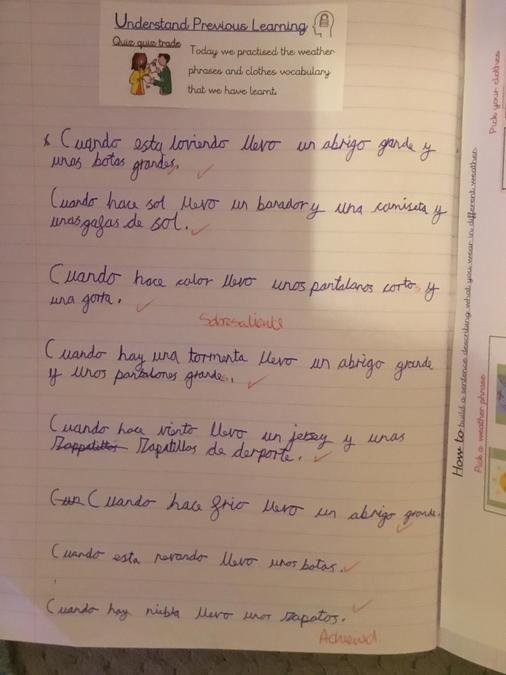 Understand Previous Learning
Quiz quiz trade
Today we practised the weather
phrases and clothes vocabulary
that we have learnt.
Pick your clothes
* Cuando esta loviendo llevo un abrigo grande y
unas botas grandes.
Cuando hace sol llevo un banador y una camiseta y
unas gafas de sol.
Cuando hace calor llevo unos pantalones cortos y
una gorra.
Sobresaliente
Cuando hay una tormenta llevo un abrigo grande
y unos pantalones grandes.
Cuando hace viento llevo un jersey y unas
Zapatillas de derporte.
Cuando hace frio llevo un abrigo grande.
Cuando esta nevando llevo unas botas.
Cuando hay niebla llevo unos zapatos.
Achieved
How to build a sentence describing what you wear in different weather.
Pick a weather phrase